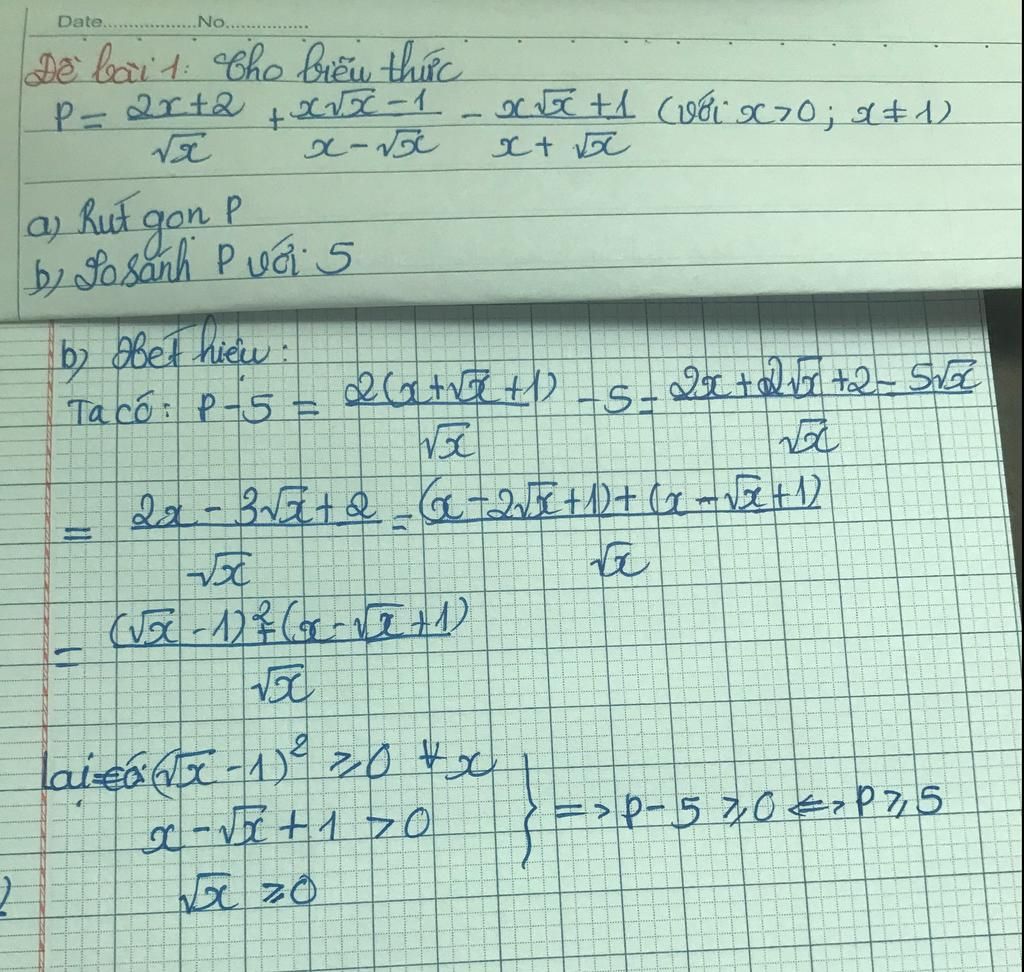 Date..................No...............
Đề bài 1: Cho biểu thức
P = \frac{2x+2}{\sqrt{x}} + \frac{x\sqrt{x}-1}{x-\sqrt{x}} - \frac{x\sqrt{x}+1}{x+\sqrt{x}} (với x>0; x≠1)
a) Rút gọn P
b) So sánh P với 5
b) Xét hiệu:
Ta có: P-5 = \frac{2(x+\sqrt{x}+1)}{\sqrt{x}} - 5 = \frac{2x+2\sqrt{x}+2-5\sqrt{x}}{\sqrt{x}}
= \frac{2x-3\sqrt{x}+2}{\sqrt{x}} = \frac{(x-2\sqrt{x}+1)+(x-\sqrt{x}+1)}{\sqrt{x}}
= \frac{(\sqrt{x}-1)^2+(x-\sqrt{x}+1)}{\sqrt{x}}
lại có (\sqrt{x}-1)^2 ≥0 ∀x
x-\sqrt{x}+1 >0
\sqrt{x} ≥0
} => P-5 ≥0 <=> P≥5